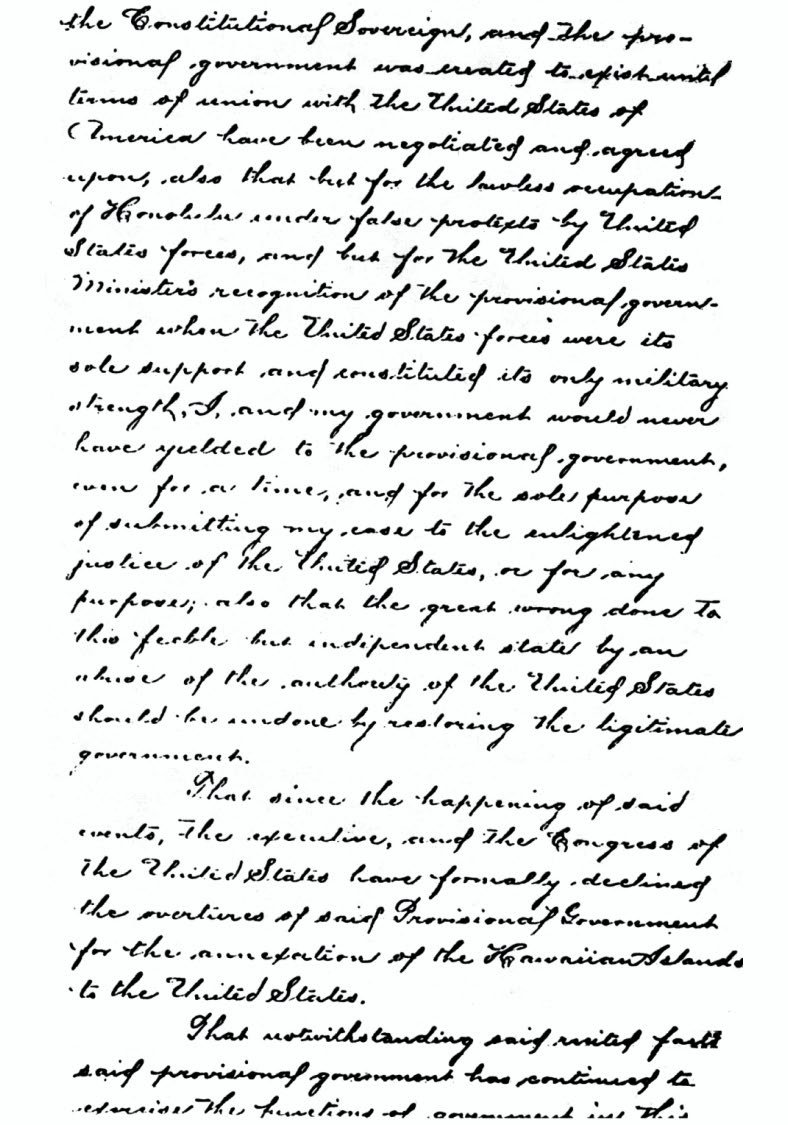 the Constitutional Sovereign, and the pro-
visional government was created to exist until
terms of union with the United States of
America have been negotiated and agreed
upon, also that but for the lawless occupation
of Honolulu under false protexts by United
States forces, and but for the United States
Minister's recognition of the provisional govern-
ment when the United States forces were its
sole support and constituted its only military
strength, I, and my government would never
have yielded to the provisional government,
even for a time, and for the sole purpose
of submitting my case to the enlightened
justice of the United States, or for any
purpose; also that the great wrong done to
this feeble but independent state by an
abuse of the authority of the United States
should be undone by restoring the legitimate
government.
That since the happening of said
events, the executive, and the Congress of
the United States have formally declined
the overtures of said Provisional Government
for the annexation of the Hawaiian Islands
to the United States.
That notwithstanding said recited facts
said provisional government has continued to
exercise the functions of government in this